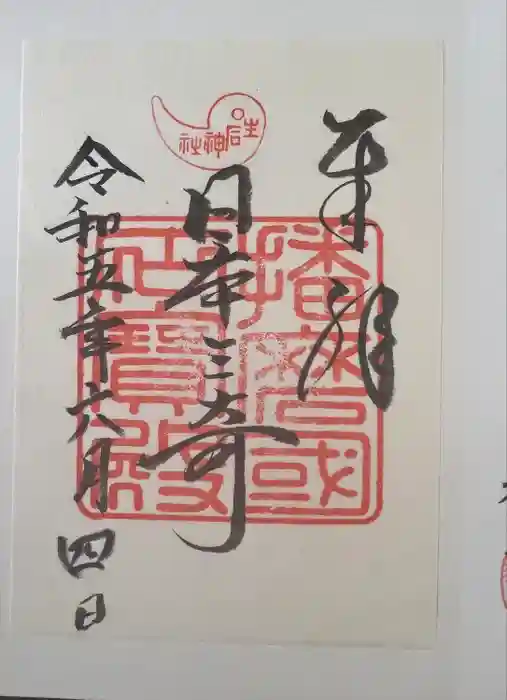 奉拝
生石神社
日本三奇
播磨國
石寶殿
令和五年六月四日